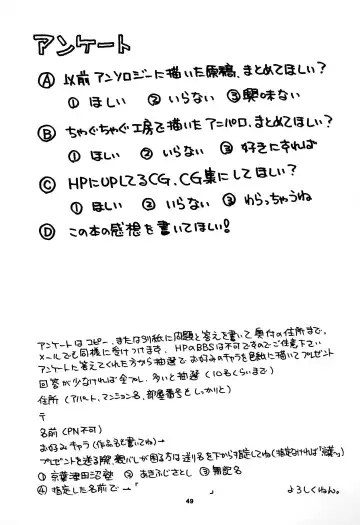 アンケート
Ⓐ 以前アンソロジーに描いた原稿、まとめてほしい？
① ほしい ② いらない ③ 興味ない
Ⓑ ちゃぐちゃぐ工房で描いたアニパロ、まとめてほしい？
① ほしい ② いらない ③ 好きにすれば
Ⓒ HPにUPしてるCG、CG集にしてほしい？
① ほしい ② いらない ③ わらっちゃうね
Ⓓ この本の感想を書いてほしい!
アンケートはコピー、または別紙に問題と答えを書いて奥付の住所まで。
メールでも同様に受けつけます、HPのBBSは不可ですのでご注意下さい
アンケートに答えてくれた方から抽選でお好みのキャラを色紙に描いてプレゼント
回答が少なければ全プレ、多いと抽選（10名くらいまで）
住所（アパート、マンション名、部屋番号をしっかりと）
〒
名前（PN不可）
お好みキャラ（作品名も書いてね）→
プレゼントを送る際、親バレが困る方は送り名を下から指定してね（指定なければ「①」）
① 京葉津田沼塾 ② あきふじさとし ③ 無記名
④ 指定した名前で→「 」 よろしくねん。
49